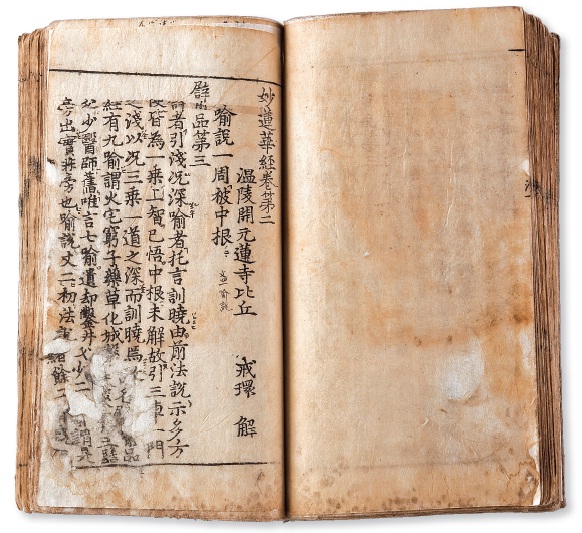 妙蓮華經卷苐二
温陵開元蓮寺比丘 戒環 解
喻說一周被中根
品苐三
者引淺况深喻者托言訓曉由前法說示多方
便皆為一乘上智已悟中根未解故引三車一門
之淺以况三乘一道之深而訓曉焉 品
經有九喻謂火宅窮子藥草化城
父少醫師舊唯言七喻遺却鑿井父少二
旁出實非旁也喻說文二初法說 餘二